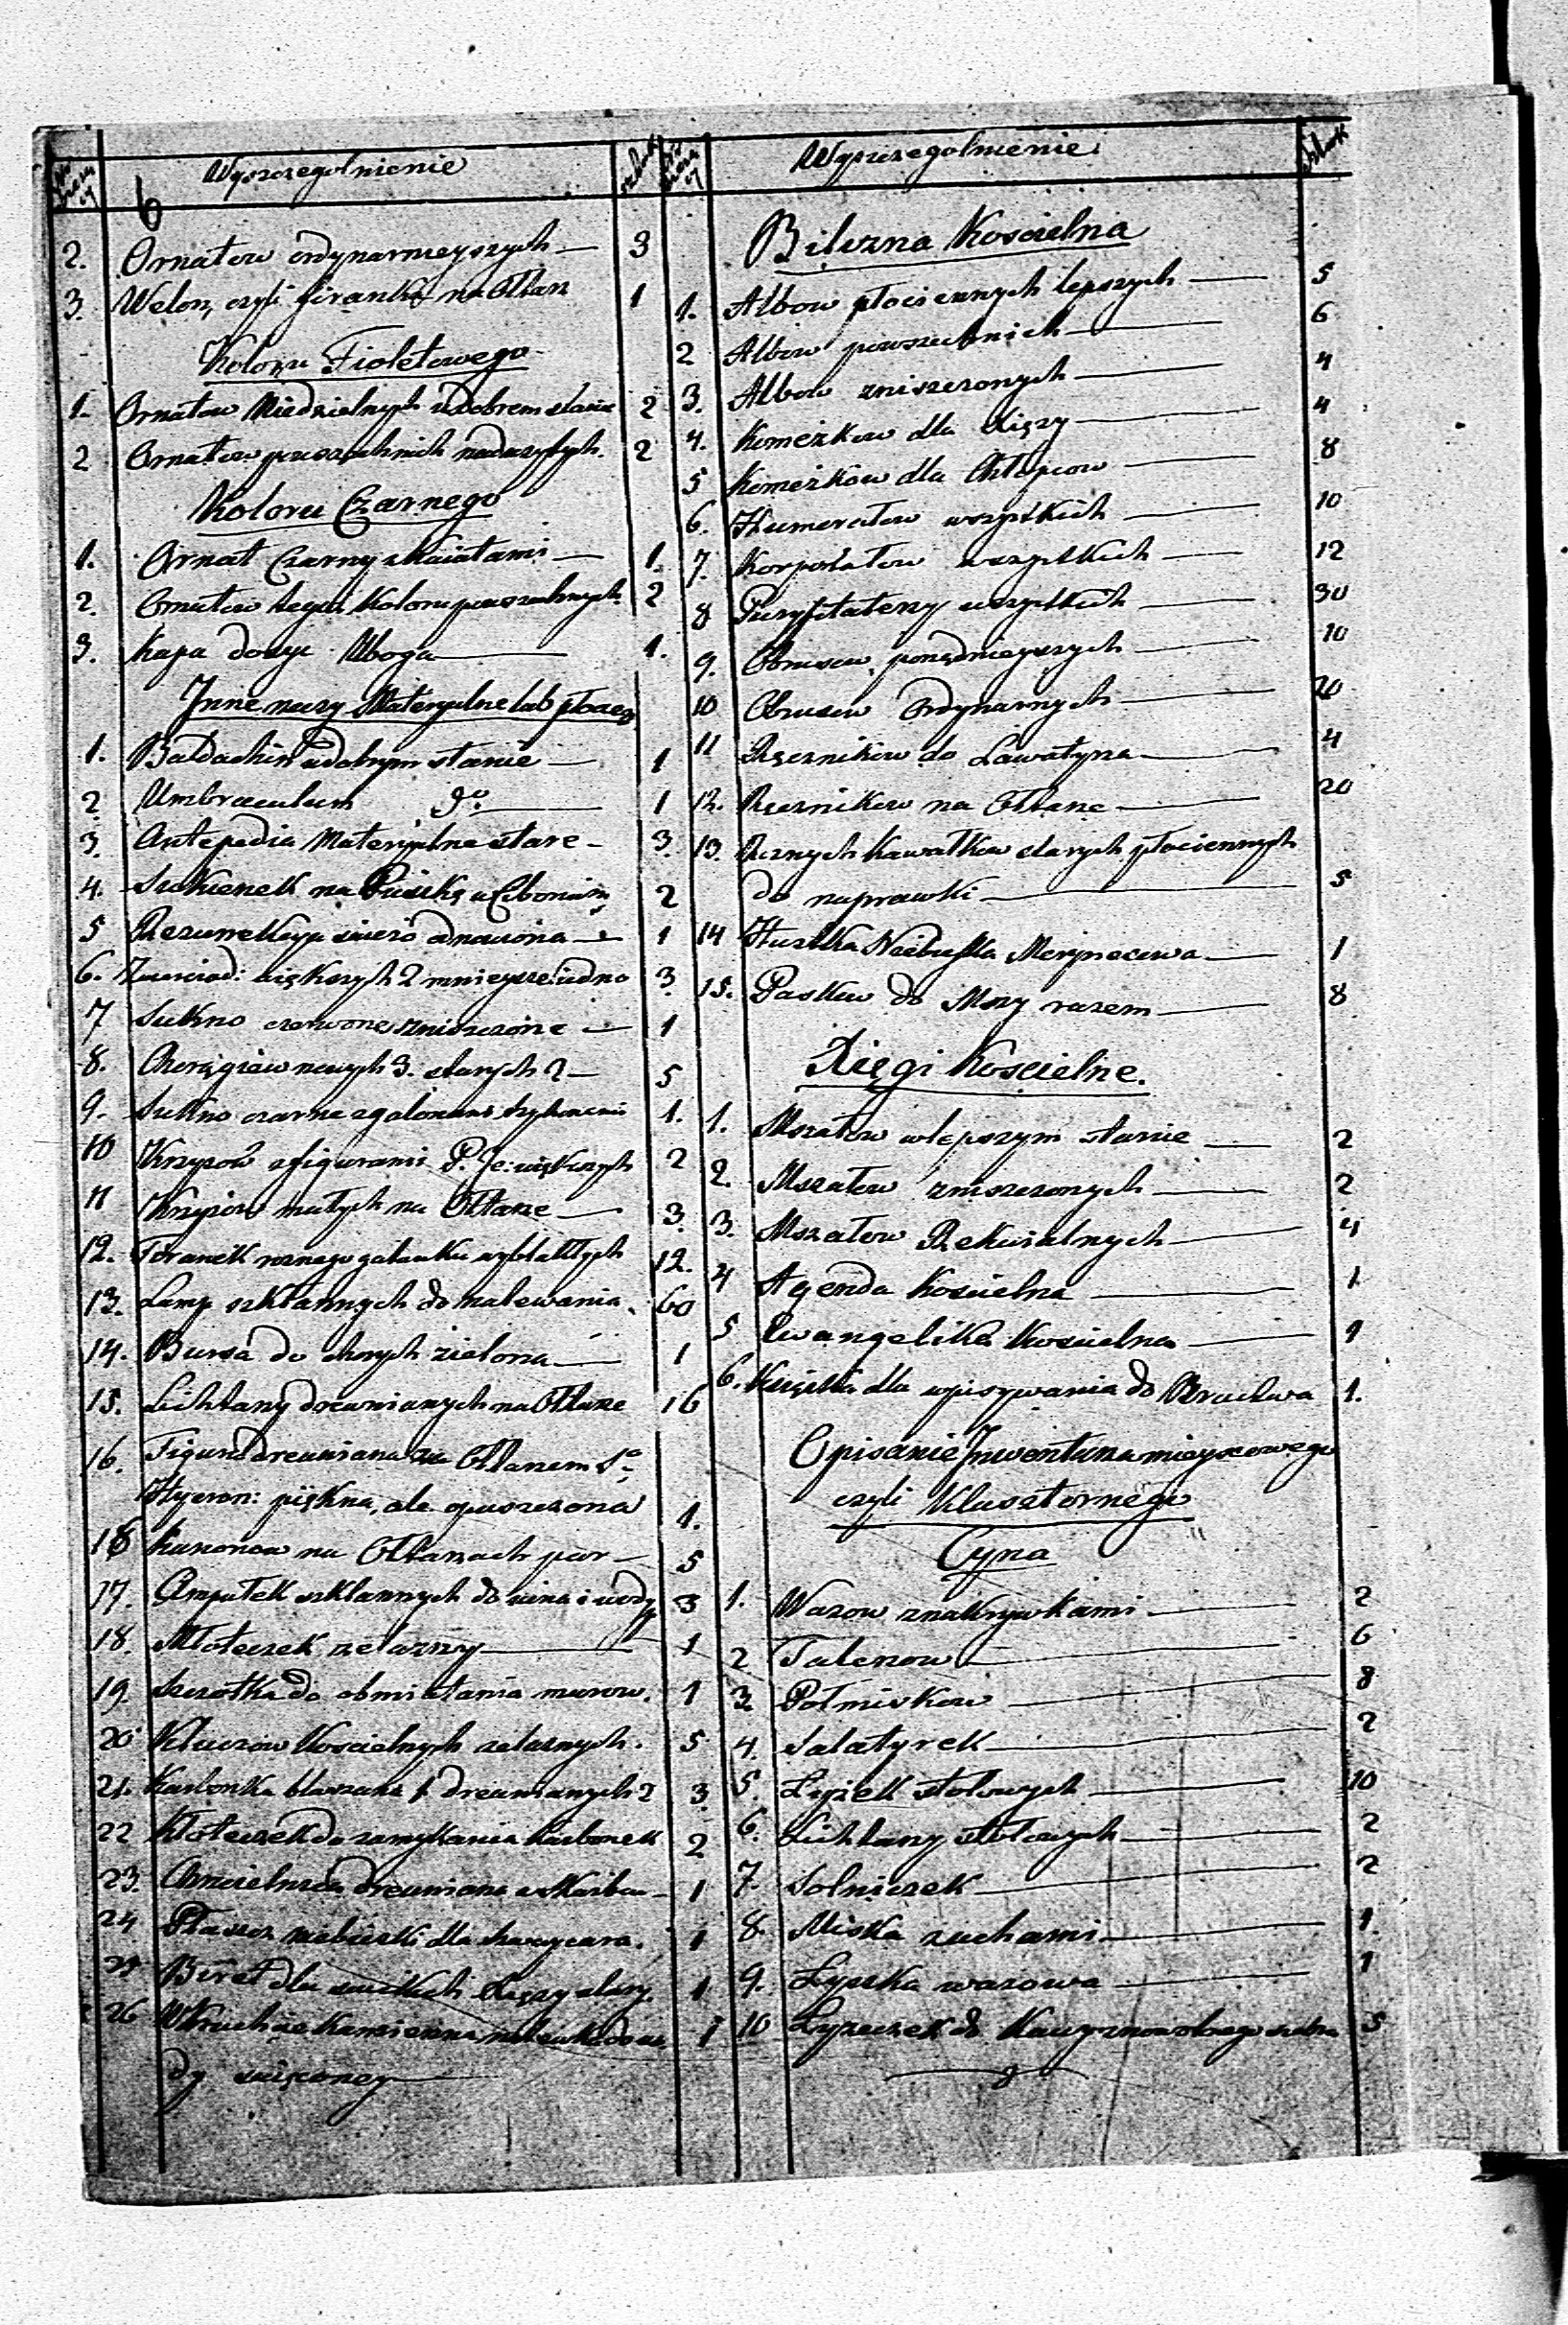 Wyszczegolnienie
6
2. Ornatow ordynarnieyszych — 3
3. Welon, czyli firanka na Ołtarz 1
Koloru Fioletowego
1. Ornatow Niedzielnych w dobrem stanie 2
2 Ornatow powszechnich nadużytych. 2
Koloru Czarnego
1. Ornat Czarny z kwiatami — 1.
2. Ornatow tegoż Koloru powszechnych 2
3. Kapa dosyc Uboga — 1.
Jnne rzeczy Materyalne lub płocien
1. Baldachin w dobrym stanie — 1
2 Umbraculum do. — 1
3. Antepedia Materyalne stare — 3.
4. Sukienek na Puszkę w Ciborium 2
5 Rezurrekcya swieżo odnowiona — 1
6. Zwierciad: większych 2 mnieysze iedno 3.
7 Sukno czerwone zniszczone — 1
8. Choręgiew nowych 3. starych 2 — 5
9. Sukno czarne z galonami 1.
10 Krzyżow z figurami P. Je: większych 2
11 Krzyżow małych na Ołtarze — 3.
12. Firanek roznego gatunku wyblakłych 12.
13. Lamp szklannych do nalewania. 60
14. Bursa do chorych zielona — 1
15. Lichtarzy drewnianych na Ołtarze 16
16. Figura drewniana za Ołtarzem Sgo
Hyeron: piękna, ale opuszczona 1.
16 Kanonow na Ołtarzach par — 5
17. Ampułek szklannych do wina i wody 3
18. Młoteczek zelazny — 1
19. Szczotka do obmiatania murow. 1
20 Kluczow Kościelnych zelaznych. 5
21. Karbonka blaszana 1 drewnianych 2 3.
22 Kłoteczek do zamykania karbonek 2
23. Chrcielnica drewniana w Skarbcu — 1
24 Płaszcz niebieski dla szwaycara. 1
25 Biret dla swieckich Xięży stary. 1
26 W Kruchcie Kamienna 1
dy święconey —
Wyszczegolnienie
Bilizna Kościelna
1. Albow płociennych lepszych — 5
2 Albow powszechnich — 6
3. Albow zniszczonych — 4
4. Komeżkow dla Xięży — 4
5 Komeżkow dla Chłopcow — 8
6. Humerałow wszystkich — 10
7. Korporałow wszystkich — 12
8 Puryfikaterzy wszystkich — 30
9. Obrusow porządnieyszych — 10
10 Obrusow Ordynarnych — 20
11 Ręcznikow do Lawatyrza — 4
12. Ręcznikow na Ołtarze — 20
13. Rożnych kawałkow starych płociennych
do naprawki — 5
14 Hustka Niebieska Merynosowa — 1
15. Paskow do Mszy razem — 8
Xięgi Koscielne.
1. Mszałow w lepszym stanie — 2
2. Mszałow zniszczonych — 2
3. Mszałow Rekwialnych — 4
4 Agenda Koscielna — 1
5 Ewangelika Koscielna — 1
6. Książka dla wpisywania do Bractwa 1.
Opisanie Jnwentarza mieyscowego
czyli Klasztornego
Cyna
1. Wazow z nakrywkami — 2
2 Talerzow — 6
3. Połmiskow — 8
4. Salatyrek — 2
5. Łyżek stołowych — 10
6. Lichtarzy stołowych — 2
7. Solniczek — 2
8. Miska z uchami — 1.
9. Łyżka wazowa — 1
10 Łyżeczek do Kawy 5